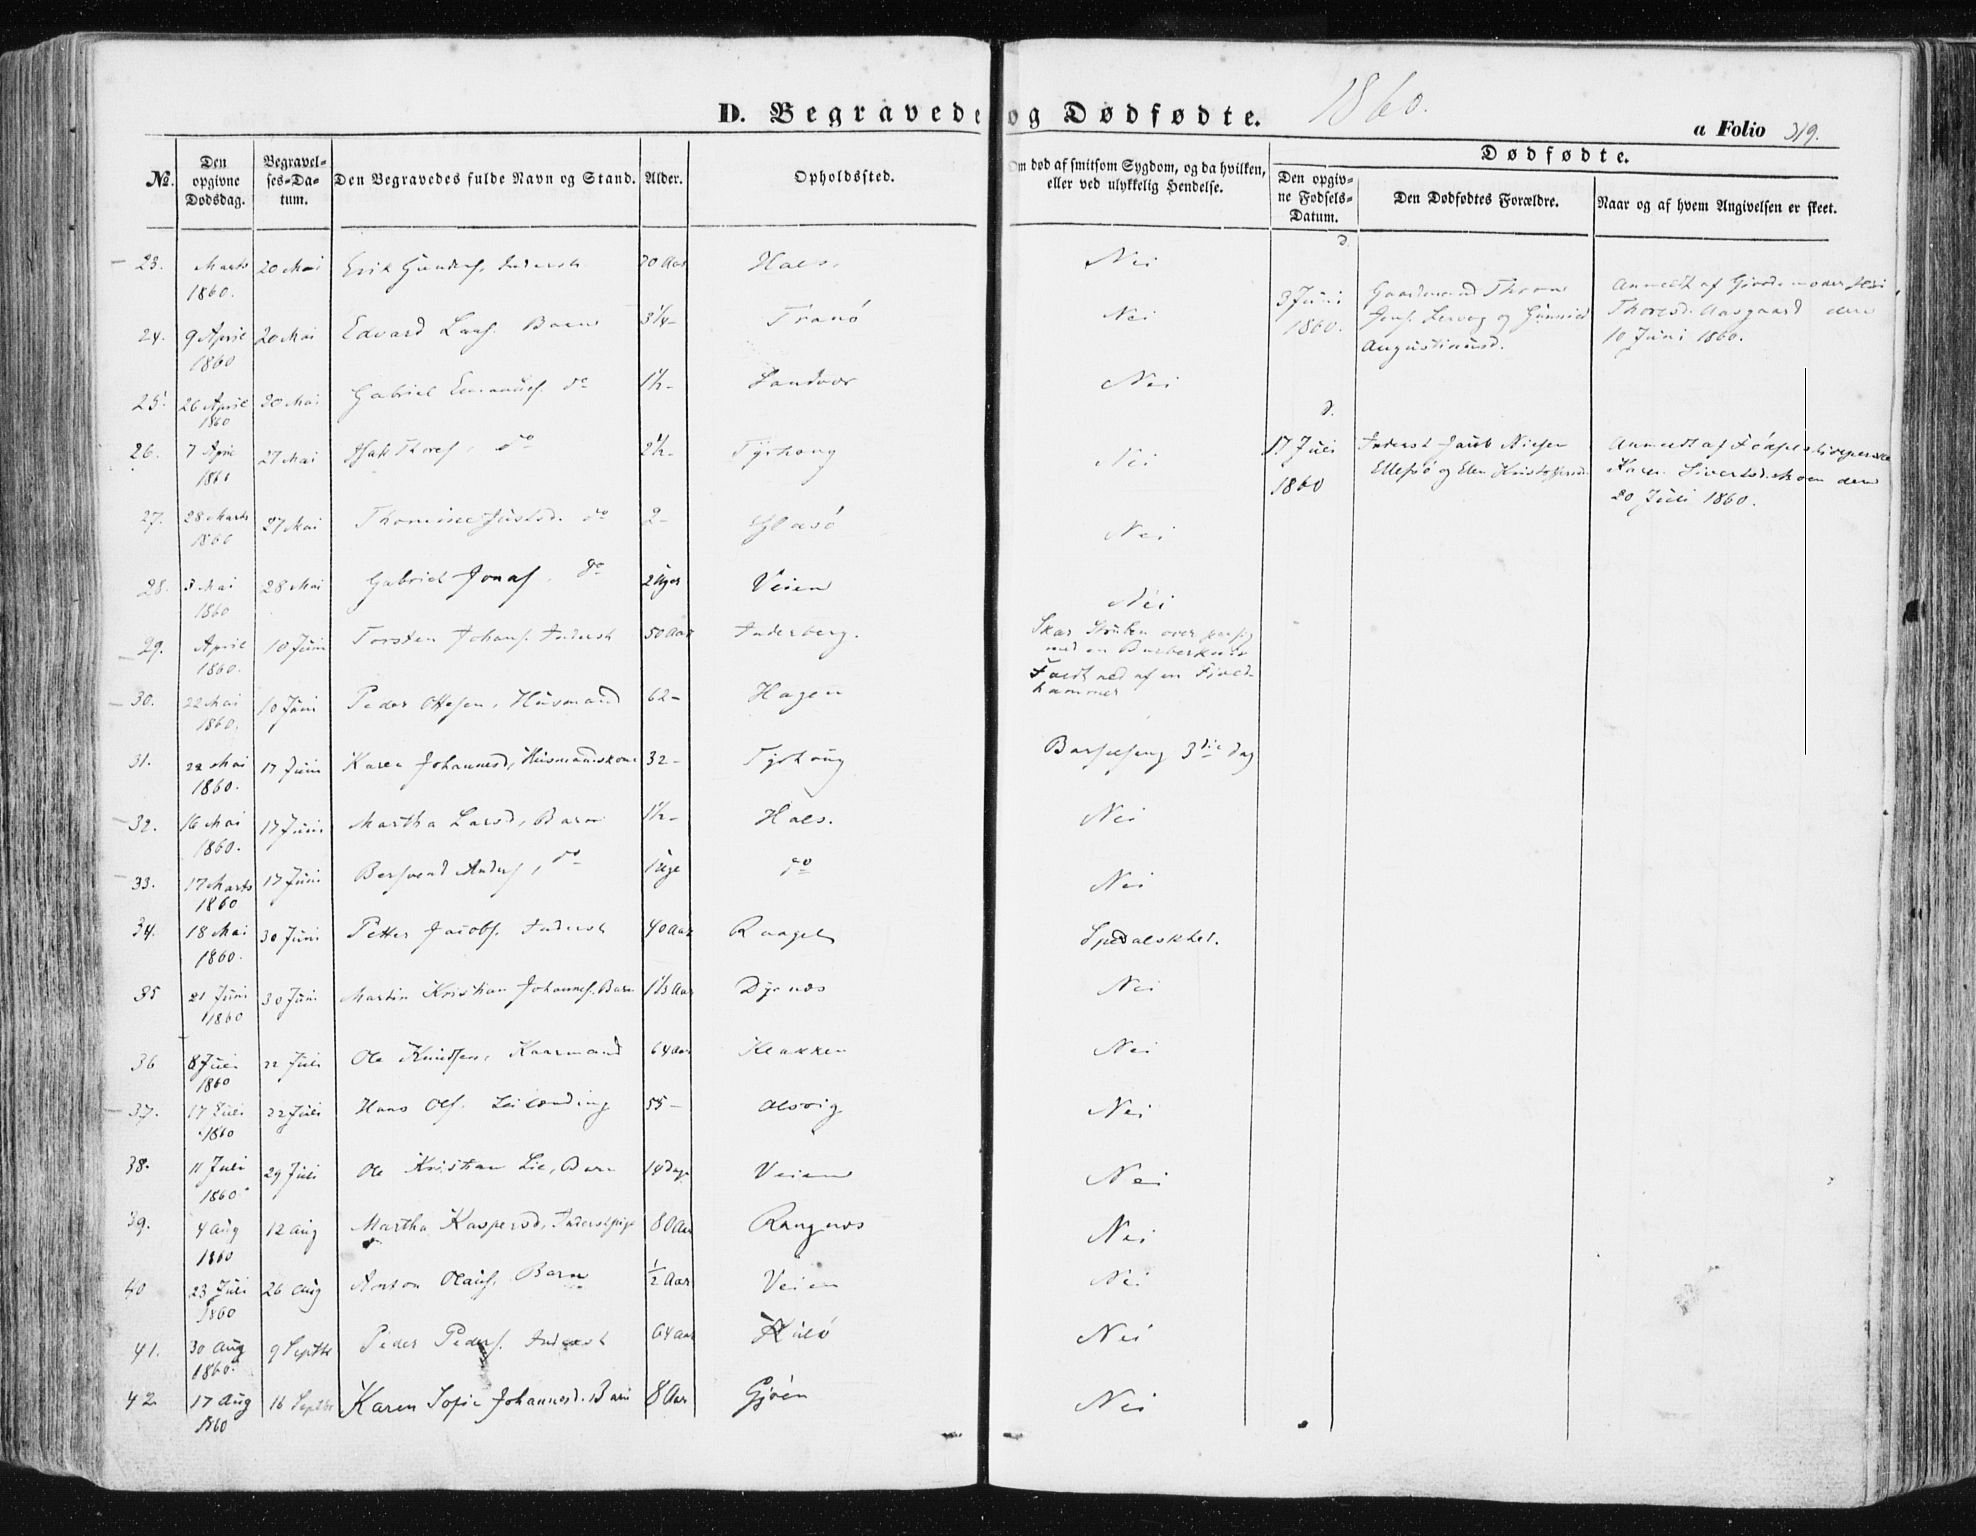 D. Begravede og Dødfødte. 1860.
a Folio 319.
No. Den opgivne Dødsdag. Begravelses-Datum. Den Begravedes fulde Navn og Stand. Alder. Opholdssted. Om død af smitsom Sygdom, og da hvilken, eller ved ulykkelig Hendelse.
Dødfødte.
Den opgivne Fødsels-Datum. Den Dødfødtes Forældre. Naar og af hvem Angivelsen er skeet.
23. Marts 1860. 20 Mai Erik Inderst 70 Aar Hals. Nei
24. 9 April 1860 20 Mai Edvard Larss. Barn 3 1/4 - Tranö Nei
25. 26 April 1860 20 Mai Gabriel Emanuels. do 1 1/2 - Sandvær Nei
26. 7 April 1860 27 Mai Isak Thores. do 2 1/2 - Tyrhoug Nei
27. 28 Marts 1860 27 Mai Thomine Justsd. do 2 - Glasö Nei
28. 3 Mai 1860 28 Mai Gabriel Jonas. do 2 Uger Veien Nei
29. April 1860. 10 Juni Torsten Johans. Inderst 50 Aar Inderberg. Skar Struben over paa sig med en Barberkniv
30. 22 Mai 1860. 10 Juni Peder Ottesen, Husmand 62 - Hagen Faldt ned af en Fjeldhammer
31. 22 Mai 1860. 17 Juni Karen Johannesd, Husmandskone 32 - Tyrhoug Barselseng 3die Dag
32. 16 Mai 1860. 17 Juni Martha Larsd, Barn 1 1/2 - Hals. Nei
33. 17 Marts 1860 17 Juni Bersvend Anders, do 1 Uge do Nei
34. 18 Mai 1860. 30 Juni Petter Jacobs. Inderst 40 Aar Spedalskhed.
35 21 Juni 1860 30 Juni Martin Kristian Johannes. Barn 1 1/3 Aar Dyrnæs Nei
36 8 Juli 1860 22 Juli Ole Knudsen, Kaarmand 64 Aar Klakken Nei
37. 17 Juli 1860 22 Juli Hans Ols. Leilænding 55 - Alsvig Nei
38. 11 Juli 1860. 29 Juli Ole Kristian Lie, Barn 14 Dage Veien Nei
39. 4 Aug 1860 12 Aug Martha Kaspersd, Inderstpige 80 Aar Rangnæs Nei
40 23 Juli 1860 26 Aug Anton Olaus. Barn 1/2 Aar Veien Nei
41. 30 Aug 1860. 9 Septbr Peder Peders. Inderst 64 Aar Kulö Nei
42. 17 Aug 1860 16 Septbr Karen Sofie Johannesd. Barn 8 Aar Gjöen Nei
3 Juni 1860. Gaardmand Thron Jons. Lervog og Gunnild Augustinusd. Anmeldt af Gjordemoder Thoresd. Aasgaard den 10 Juni 1860.
17 Juli 1860 Inderst Jacob Nielsen Ellefsö og Elen Kristoffersd. Anmeldt af Fødselshjelperske Karen Sivertsd. Moen den 20 Juli 1860.